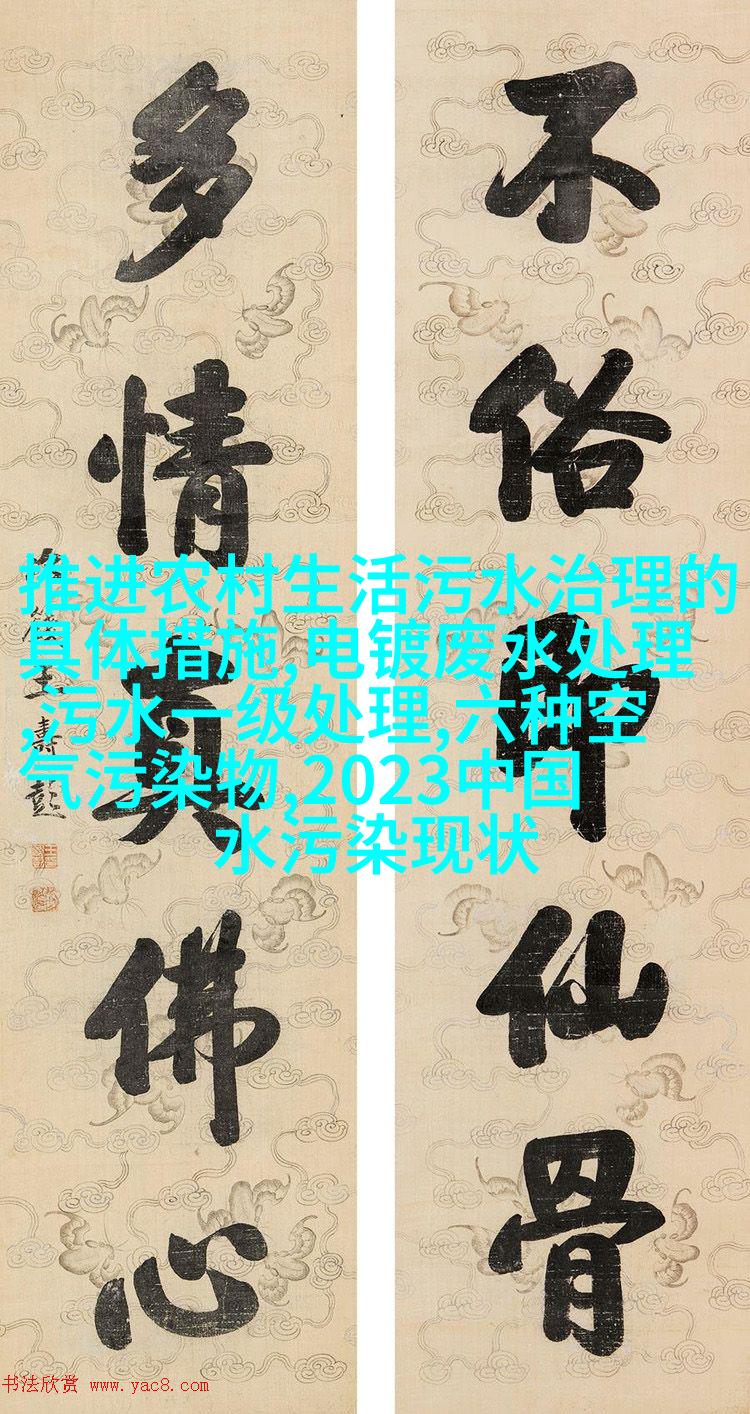 不俗即仙骨
多情真佛心
王壽彭
推进农村生活污水治理的
具体措施,电镀废水处理
,污水一级处理,六种空
气污染物,2023中国
水污染现状
书法欣赏 www.yac8.com